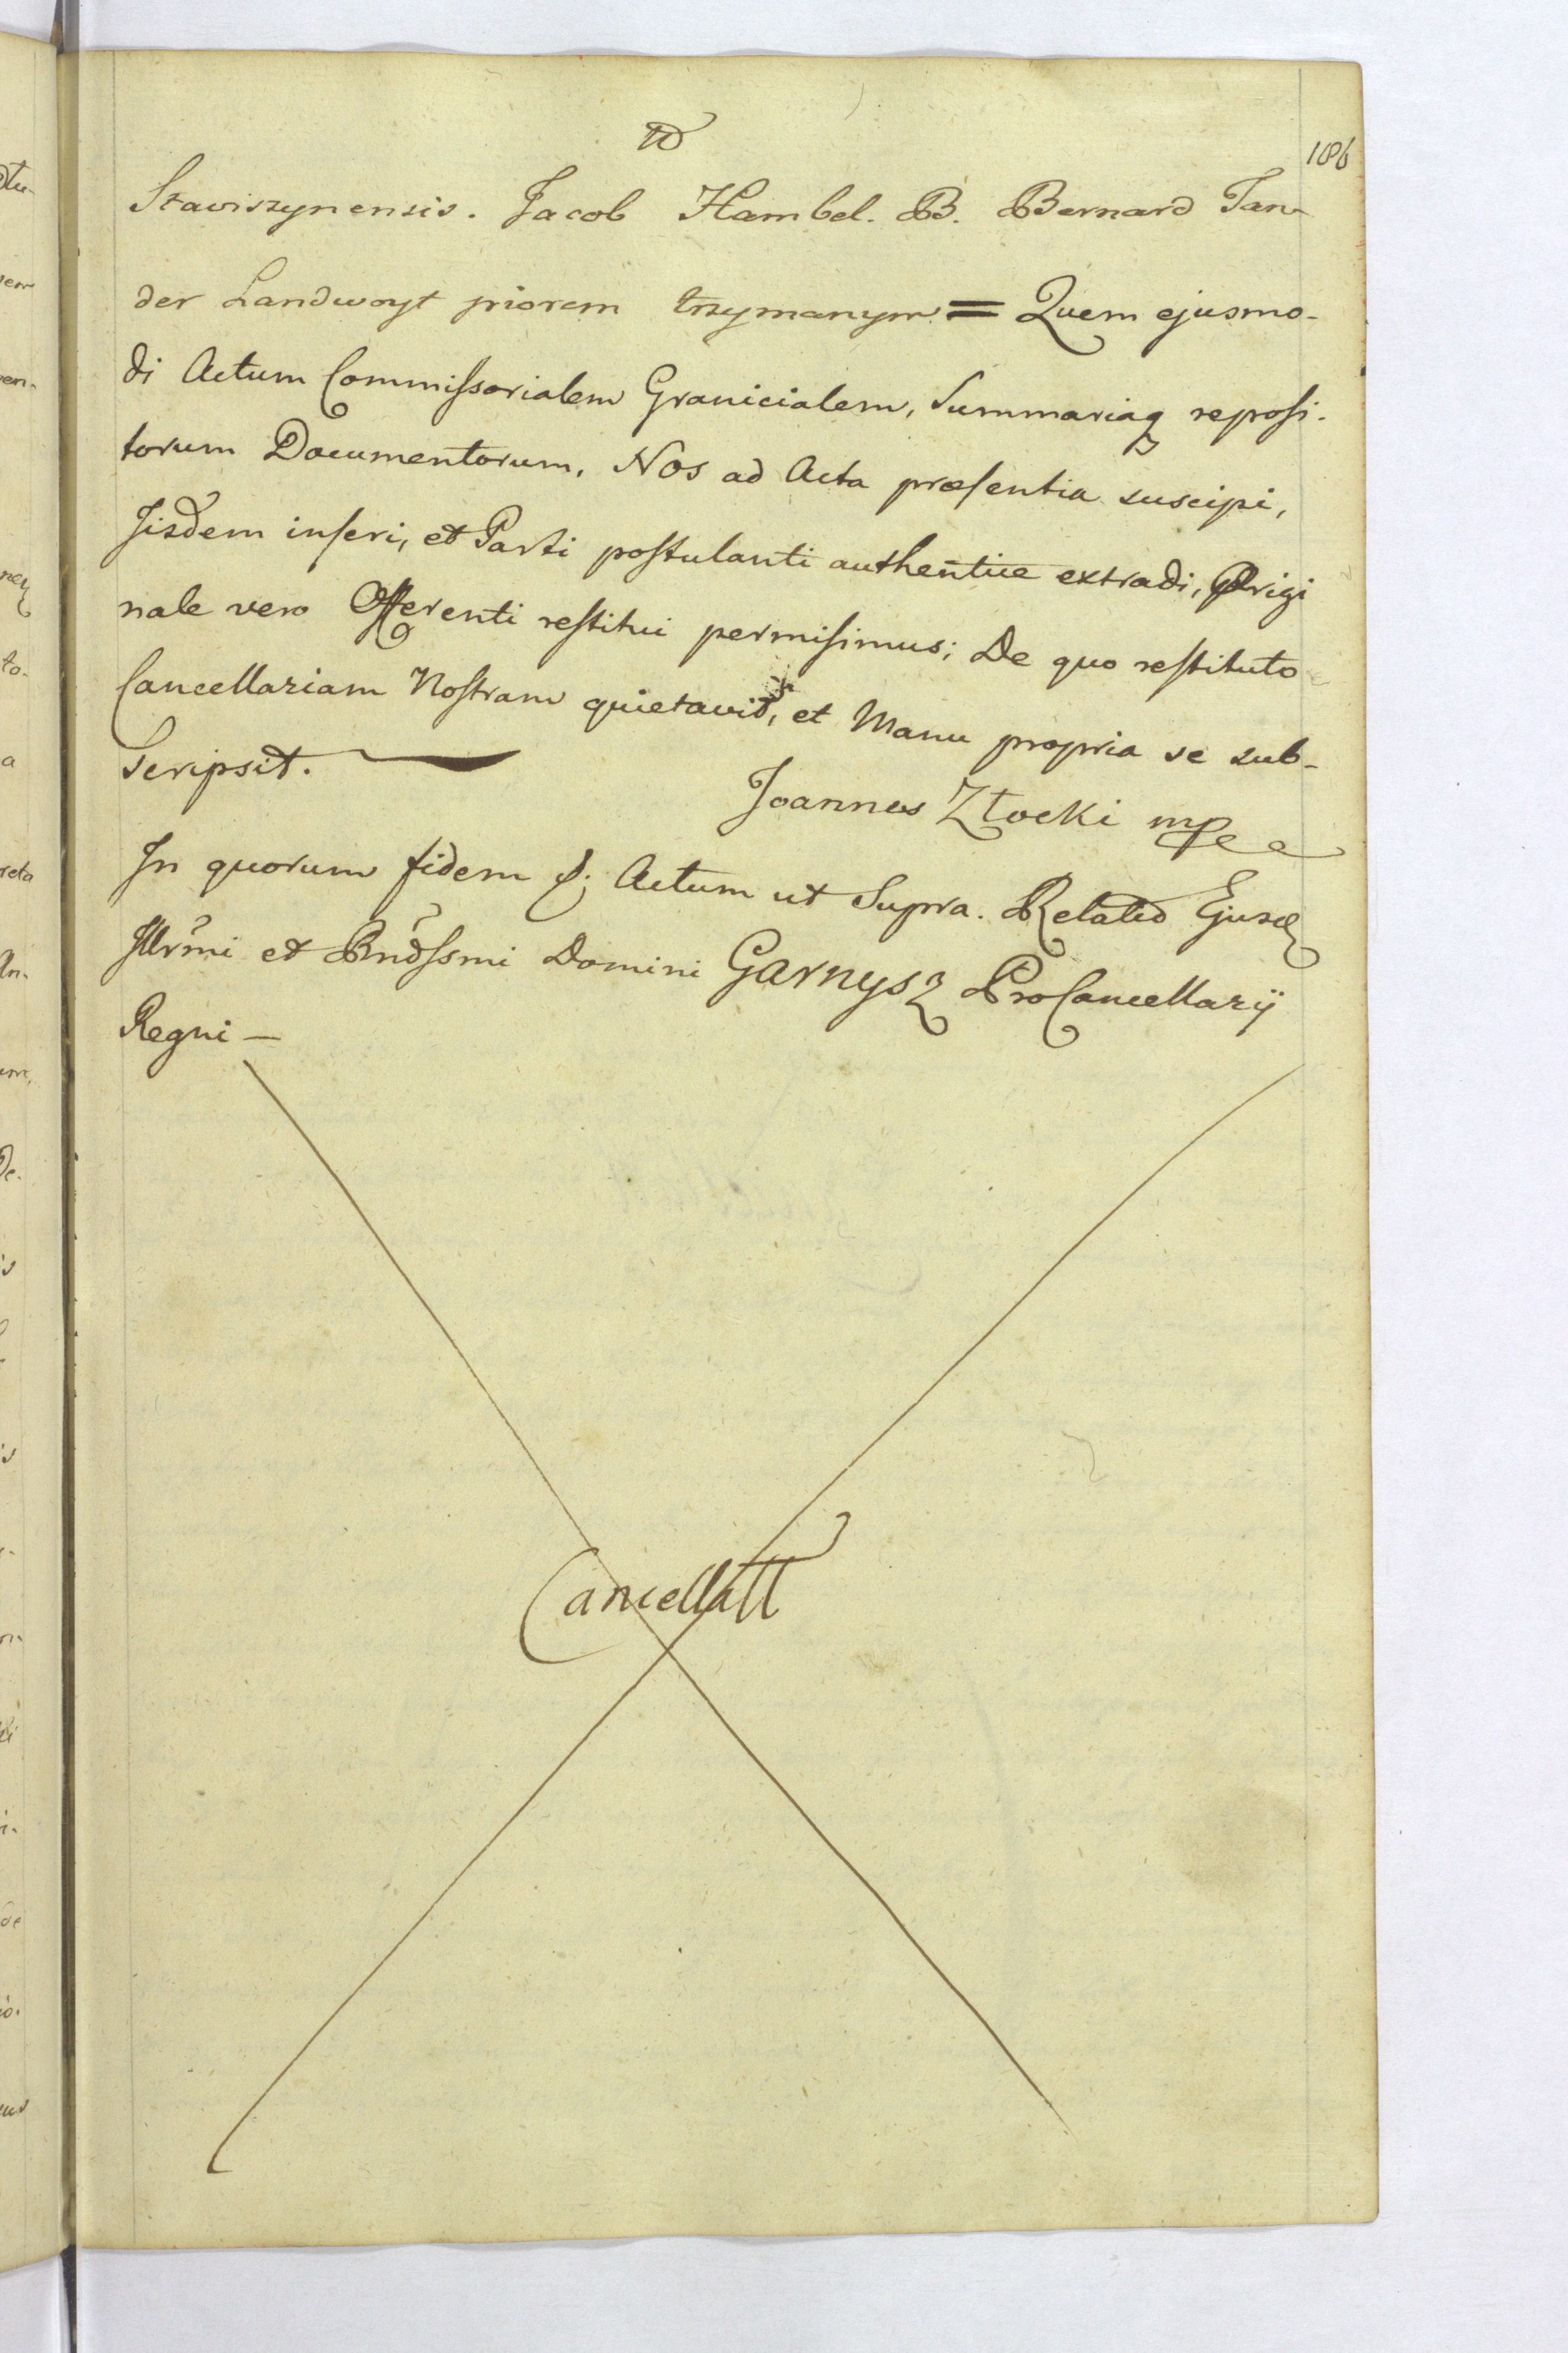 186
Stawiszynensis. Jacob Hambel. B. Bernard Tan-
der Landwoyt priorem trzymanym = Quem ejusmo-
di Actum Commissorialem Granicialem, Summariaq reposi-
torum Documentorum, Nos ad Acta præsentia suscipi,
Jisdem inseri, et Parti postulanti authentice extradi, Origi
nale vero Offerenti restitui permisimus; De quo restituto
Cancellariam Nostram quietavit, et Manu propria se sub-
scripsit.
Joannes Złocki mp
In quorum fidem &; Actum ut Supra. Relatio Ejusd
Illrmi et Rndssmi Domini Garnysz ProCancellarij
Regni —
Cancellatt